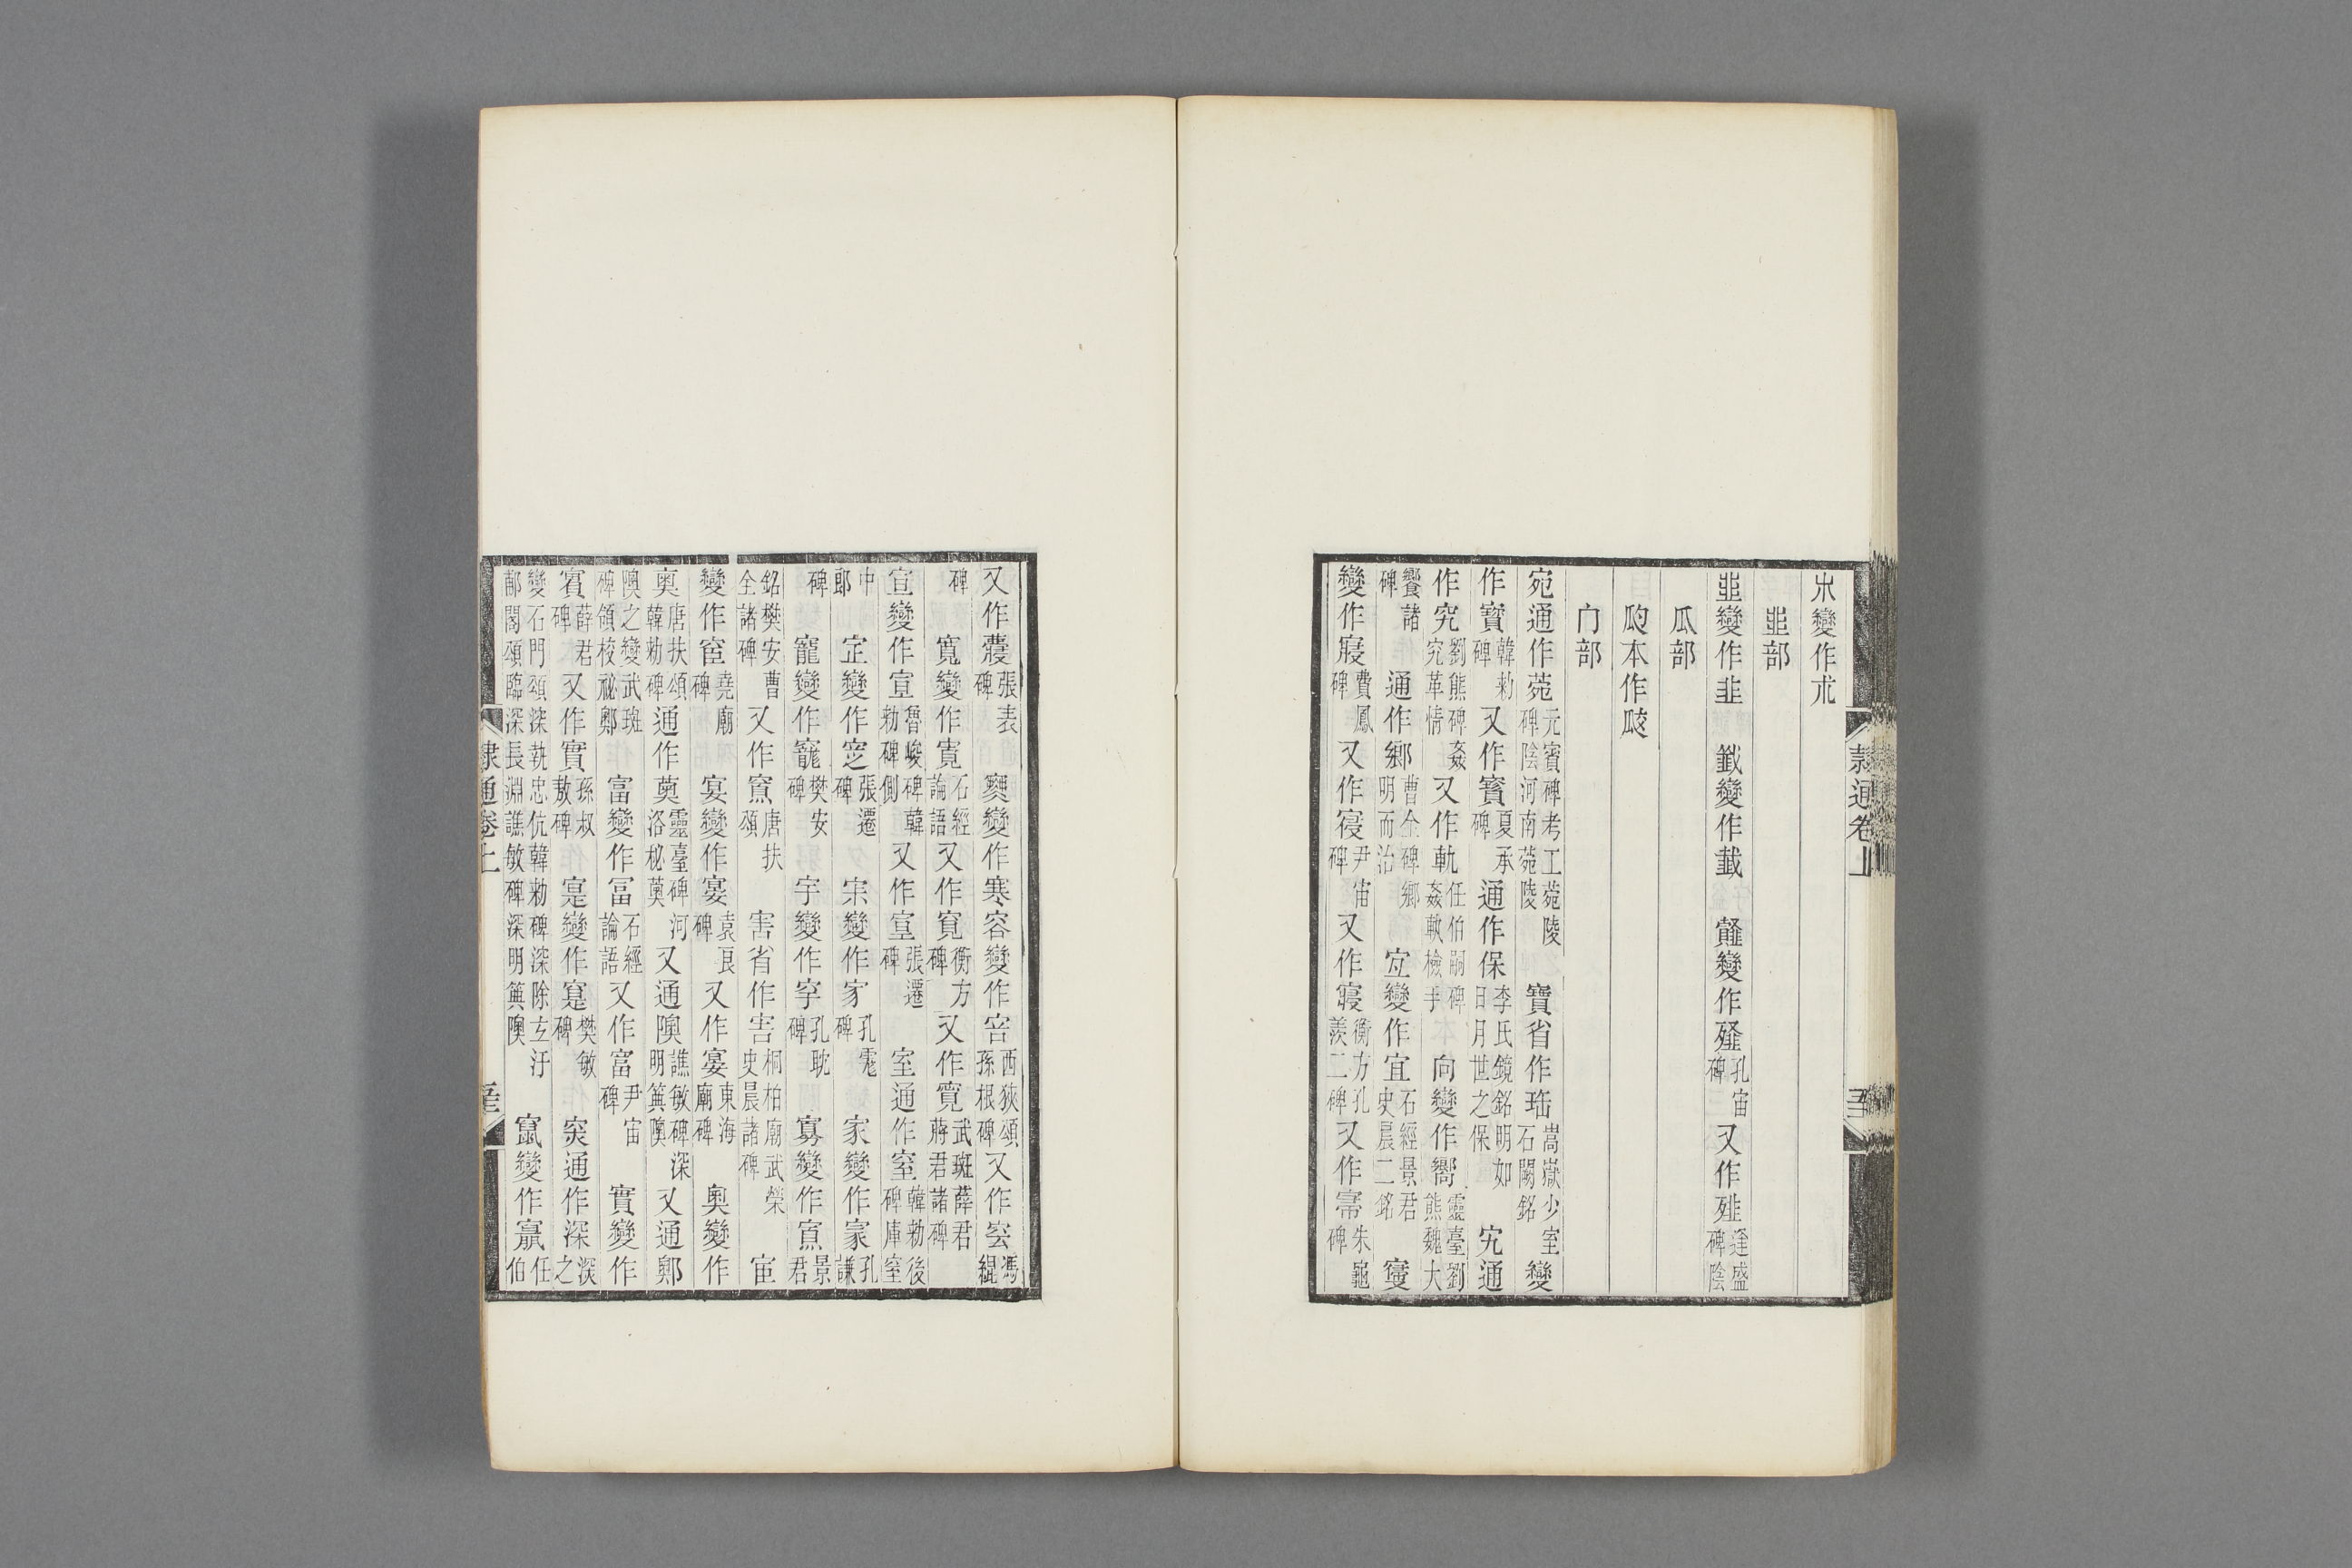 朩變作朮
韭部
韭變作韭 韱變作韯 䪥變作𣩊孔宙碑又作𣦸逢盛碑陰
瓜部
瓝本作瓞
宀部
宛通作菀元賓碑考工菀陵碑陰河南菀陵 寶省作珤嵩嶽少室石闕銘 變
作寳韓勑碑又作寶夏承碑通作保李氏鏡銘明如日月世之保 宄通
作究劉熊碑姦究革情又作軌任伯嗣碑姦軌檢手 向變作嚮靈臺劉熊魏大
饗諸碑 通作鄉曹全碑鄉明而治 宐變作宜石經景君史晨二銘 寑
變作寢費鳳碑又作寑尹宙碑又作寢衡方孔羨二碑又作𡪢朱龜碑
隸通卷上
又作𡪢張表碑 𡫳變作寒容變作㝐西狹頌孫根碑又作䆟馮緄
碑 寬變作寛石經論語又作寛衡方碑又作寬武斑薛君蔣君諸碑
宣變作宣魯峻碑韓勑碑側又作𡩀張遷碑 室通作窒韓勑後碑庫窒
中郎 定變作㝎張遷碑 宋變作宋孔宙碑 家變作家孔謙
碑 寵變作竉樊安碑 宇變作穻孔耽碑 寡變作𡩜景君
銘樊安曹全諸碑 又作𡩜唐扶頌 害省作害桐柏廟武榮史晨諸碑 宦
變作䆠堯廟碑 宴變作宴袁良碑又作宴東海廟碑 奥變作
奧唐扶頌韓勑碑通作薁靈臺碑河洛秘薁又通隩譙敏碑深明籅隩又通鄭
隩之變武斑碑領校祕鄭 富變作冨石經論語又作富尹宙碑 實變作
賓薛君碑又作實孫叔敖碑 寔變作寔樊敏碑 突通作深深之
變石門頌深執忠伉韓勑碑深除玄汙郙閣頌臨深長淵譙敏碑深明籅隩 竄變作竄任伯
隸通卷上